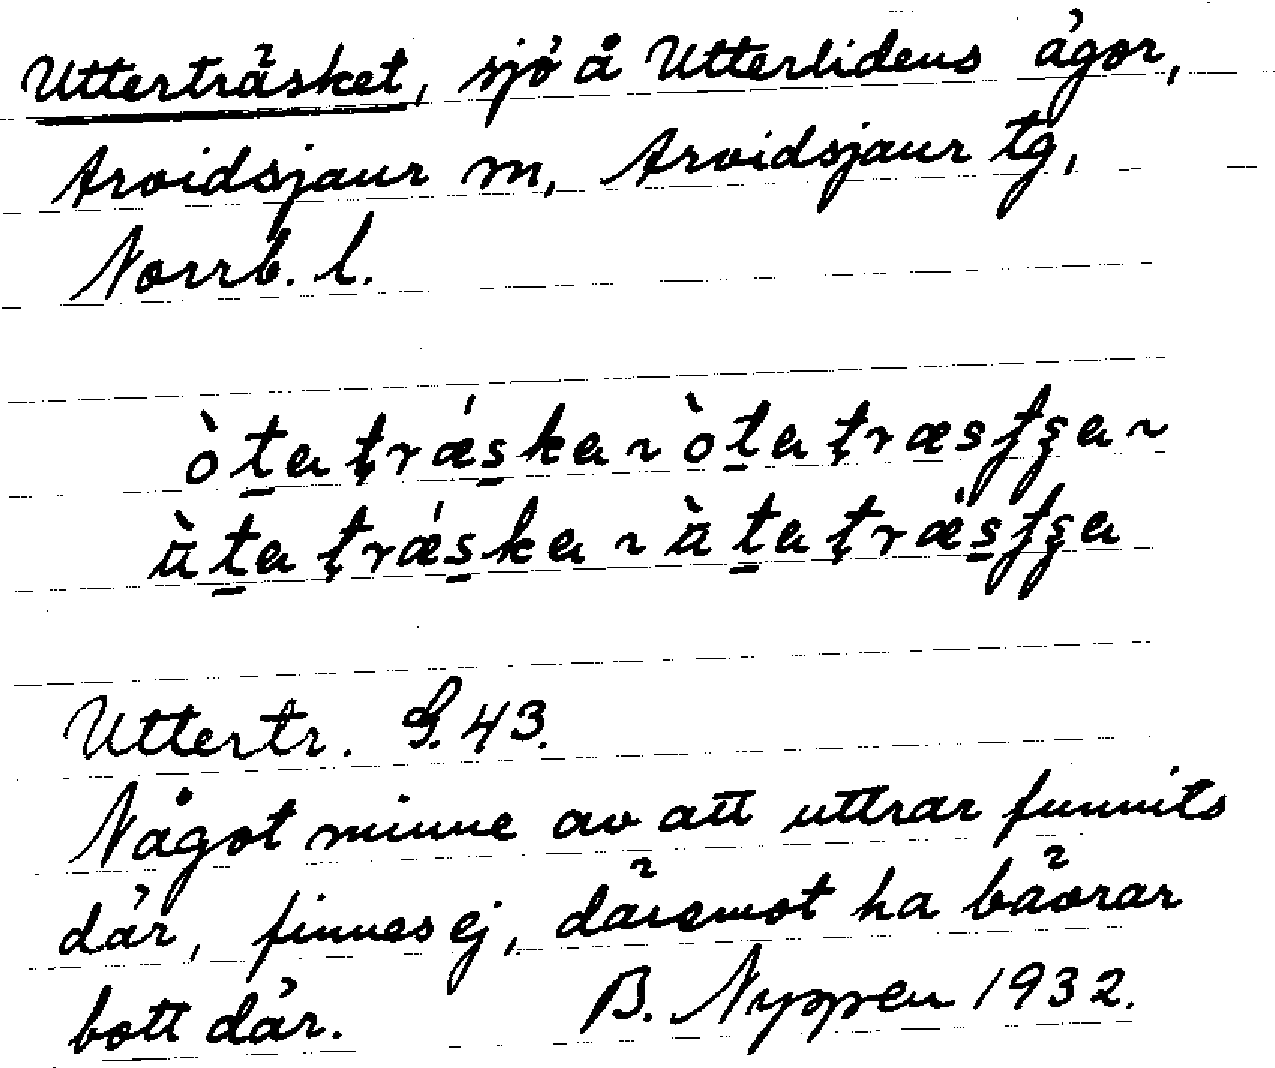 Utterträsket, sjö å Utterlidens ägor,
Arvidsjaur sn, Arvidsjaur tg,
Norrb. l.
òta træ´ska ~ òta træsʃʂa ~
ὰta træ´ska ~ ὰta træ´sʃʂa
Uttertr. G. 43.
Något minne av att uttrar funnits
där, finnes ej, däremot ha bävrar
bott där. B. Nyppen 1932.